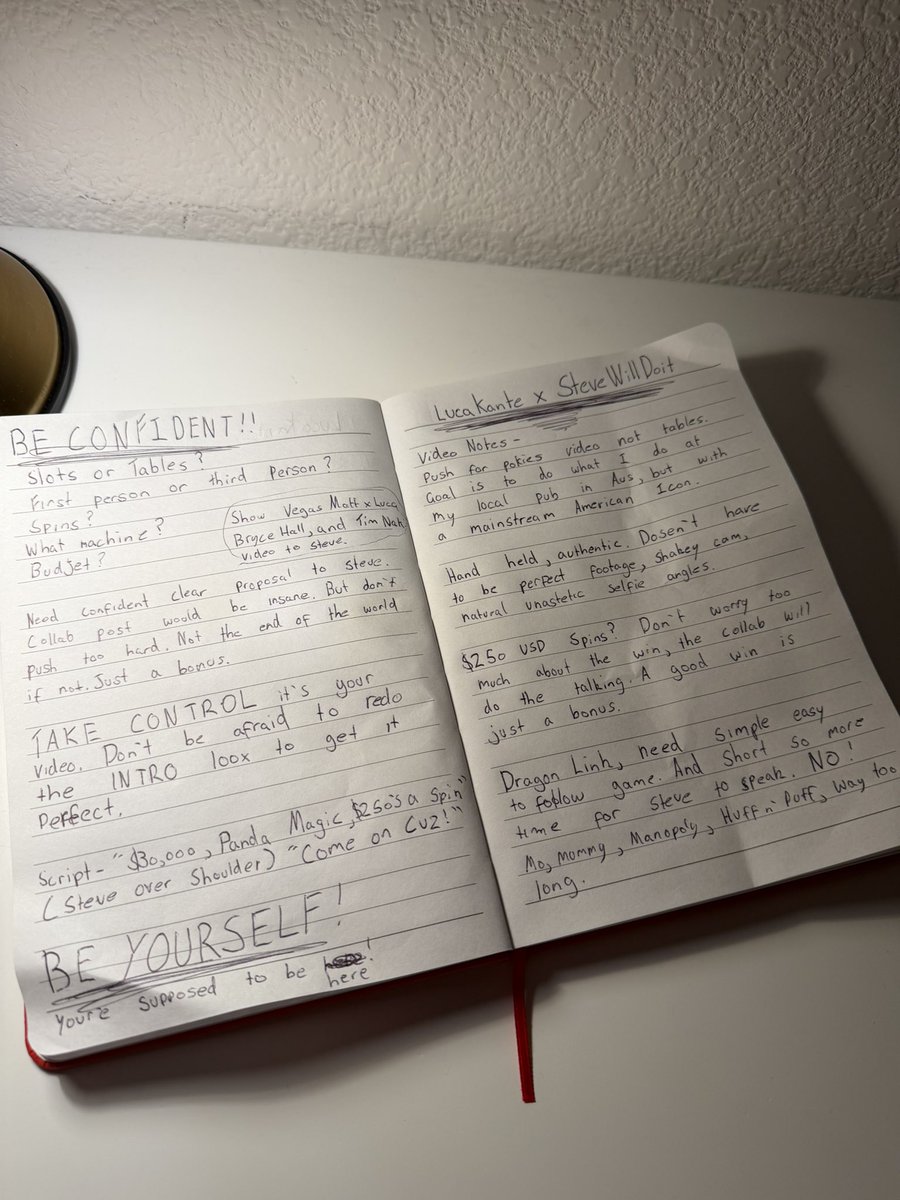 BE CONFIDENT!!
Slots or Tables?
First person or third person?
Spins?
What machine?
Budjet?
Show Vegas Matt x Luca
Bryce Hall, and Tim Nah
video to Steve.
Need confident clear proposal to Steve.
Collab post would be insane. But don't
push too hard. Not the end of the world
if not. Just a bonus.
TAKE CONTROL it's your
video. Don't be afraid to redo
the INTRO 100x to get it
perfect.
Script- "$30,000, Panda Magic, $250's a Spin"
(Steve over Shoulder) "Come on Cuz!"
BE YOURSELF!
You're supposed to be !
here
Luca Kante x SteveWillDoit
Video Notes -
Push for pokies video not tables.
Goal is to do what I do at
my local pub in Aus, but with
a mainstream American Icon.
Hand held, authentic. Dosen't have
to be perfect footage, shakey cam,
natural unastetic selfie angles.
$250 USD Spins? Don't worry too
much about the win, the collab will
do the talking. A good win is
just a bonus.
Dragon Link, need simple easy
to follow game. And Short so more
time for Steve to speak. NO!
Mo, mommy, Manopoly, Huff n' Puff, way too
long.